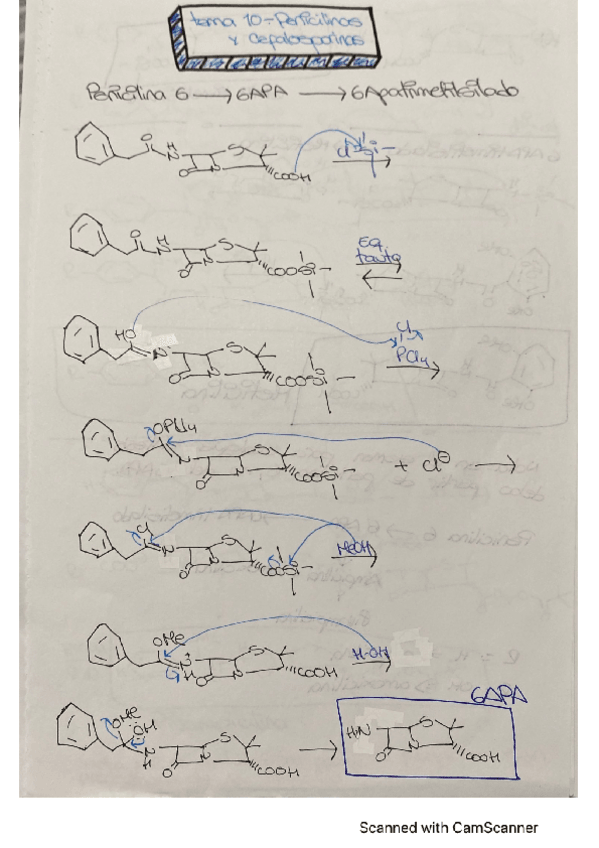 tema 10-Penicilinas
y cefalosporinas
Penicilina G → 6APA → 6Apatrimetilsilado
O H N S O N COOH Cl Si
O H N S O N COOSi Eq. tauto
HO N S O N COOSi Cl PCl4
OPCl4 N S O N COOSi + Cl⊖
Cl N S O N COOSi MeOH
OMe N H S O N COOH H-OH
6APA
OMe OH N H S O N COOH H2N S O N COOH
Scanned with CamScanner